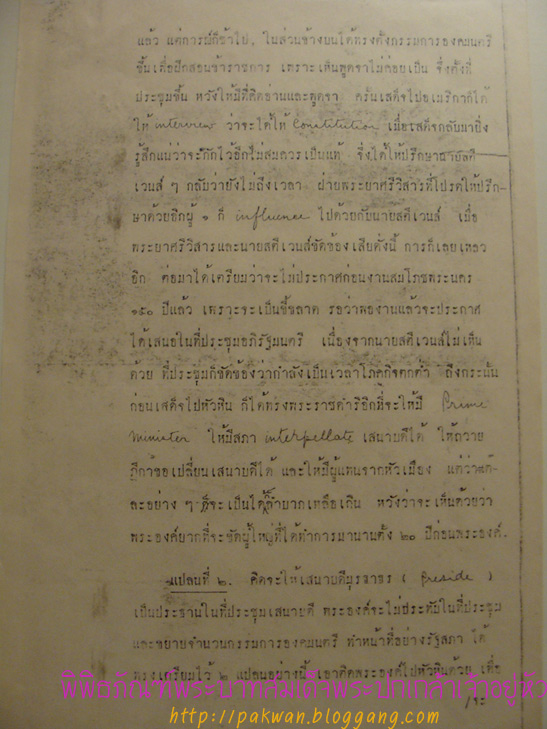 แล้ว แต่การก็ช้าไป, ในส่วนข้างบนได้ทรงตั้งกรรมการองคมนตรี
ขึ้นเพื่อฝึกสอนข้าราชการ เพราะเห็นพูดจาไม่ค่อยเป็น จึ่งตั้งที่
ประชุมขึ้น หวังให้มีที่คิดอ่านและพูดจา ครั้นเสด็จไปอเมริกาก็ได้
ให้ interview ว่าจะได้ให้ Constitution เมื่อเสด็จกลับมายิ่ง
รู้สึกแน่ว่าจะกักไว้อีกไม่สมควรเป็นแท้ จึ่งได้ให้ปรึกษานายสตี
เวนส์ ๆ กลับว่ายังไม่ถึงเวลา ฝ่ายพระยาศรีวิสารที่โปรดให้ปรึก-
ษาด้วยอีกผู้ ๑ ก็ influence ไปด้วยกับนายสตีเวนส์ เมื่อ
พระยาศรีวิสารและนายสตีเวนส์ขัดข้องเสียดั่งนี้ การก็เลยเหลว
อีก ต่อมาได้เตรียมว่าจะไม่ประกาศก่อนงานสมโภชพระนคร
๑๕๐ ปีแล้ว เพราะจะเป็นขี้ขลาด รอว่าพองานแล้วจะประกาศ
ได้เสนอในที่ประชุมอภิรัฐมนตรี เนื่องจากนายสตีเวนส์ไม่เห็น
ด้วย ที่ประชุมก็ขัดข้องว่ากำลังเป็นเวลาโภคกิจตกต่ำ ถึงกระนั้น
ก่อนเสด็จไปหัวหิน ก็ได้ทรงพระราชดำริอีกที่จะให้มี Prime
Minister ให้มีสภา interpellate เสนาบดีได้ ให้ถวาย
ฎีกาขอเปลี่ยนเสนาบดีได้ และให้มีผู้แทนจากหัวเมือง แต่ว่าแต่
ละอย่าง ๆ ก็จะเป็นได้ลำบากเหลือเกิน หวังว่าจะเห็นด้วยว่า
พระองค์ยากที่จะขัดผู้ใหญ่ที่ได้ทำการมานานตั้ง ๒๐ ปีก่อนพระองค์.
แปลนที่ ๒. คิดจะให้เสนาบดีมุรธาธร ( Preside )
เป็นประธานในที่ประชุมเสนาบดี พระองค์จะไม่ประทับในที่ประชุม
และขยายจำนวนกรรมการองคมนตรี ทำหน้าที่อย่างรัฐสภา ได้
ทรงเตรียมไว้ ๒ แปลนอย่างนี้ เอาติดพระองค์ไปหัวหินด้วย เพื่อ
/จะ
พิพิธภัณฑ์พระบาทสมเด็จพระปกเกล้าเจ้าอยู่หัว
http://pakwan.bloggang.com